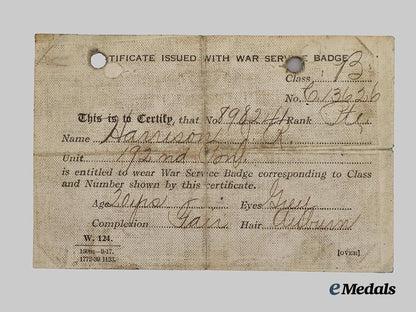 RTIFICATE ISSUED WITH WAR SERVICE BADGE
Class B
No. C13626
This is to Certify, that No 898241 Rank Pte
Name Harrison J. R.
Unit 192nd Bn.
is entitled to wear War Service Badge corresponding to Class
and Number shown by this certificate.
Age 20 yrs Eyes Grey
Complexion Fair Hair Auburn
W. 124.
1772-39 1133.
[OVER]
eMedals